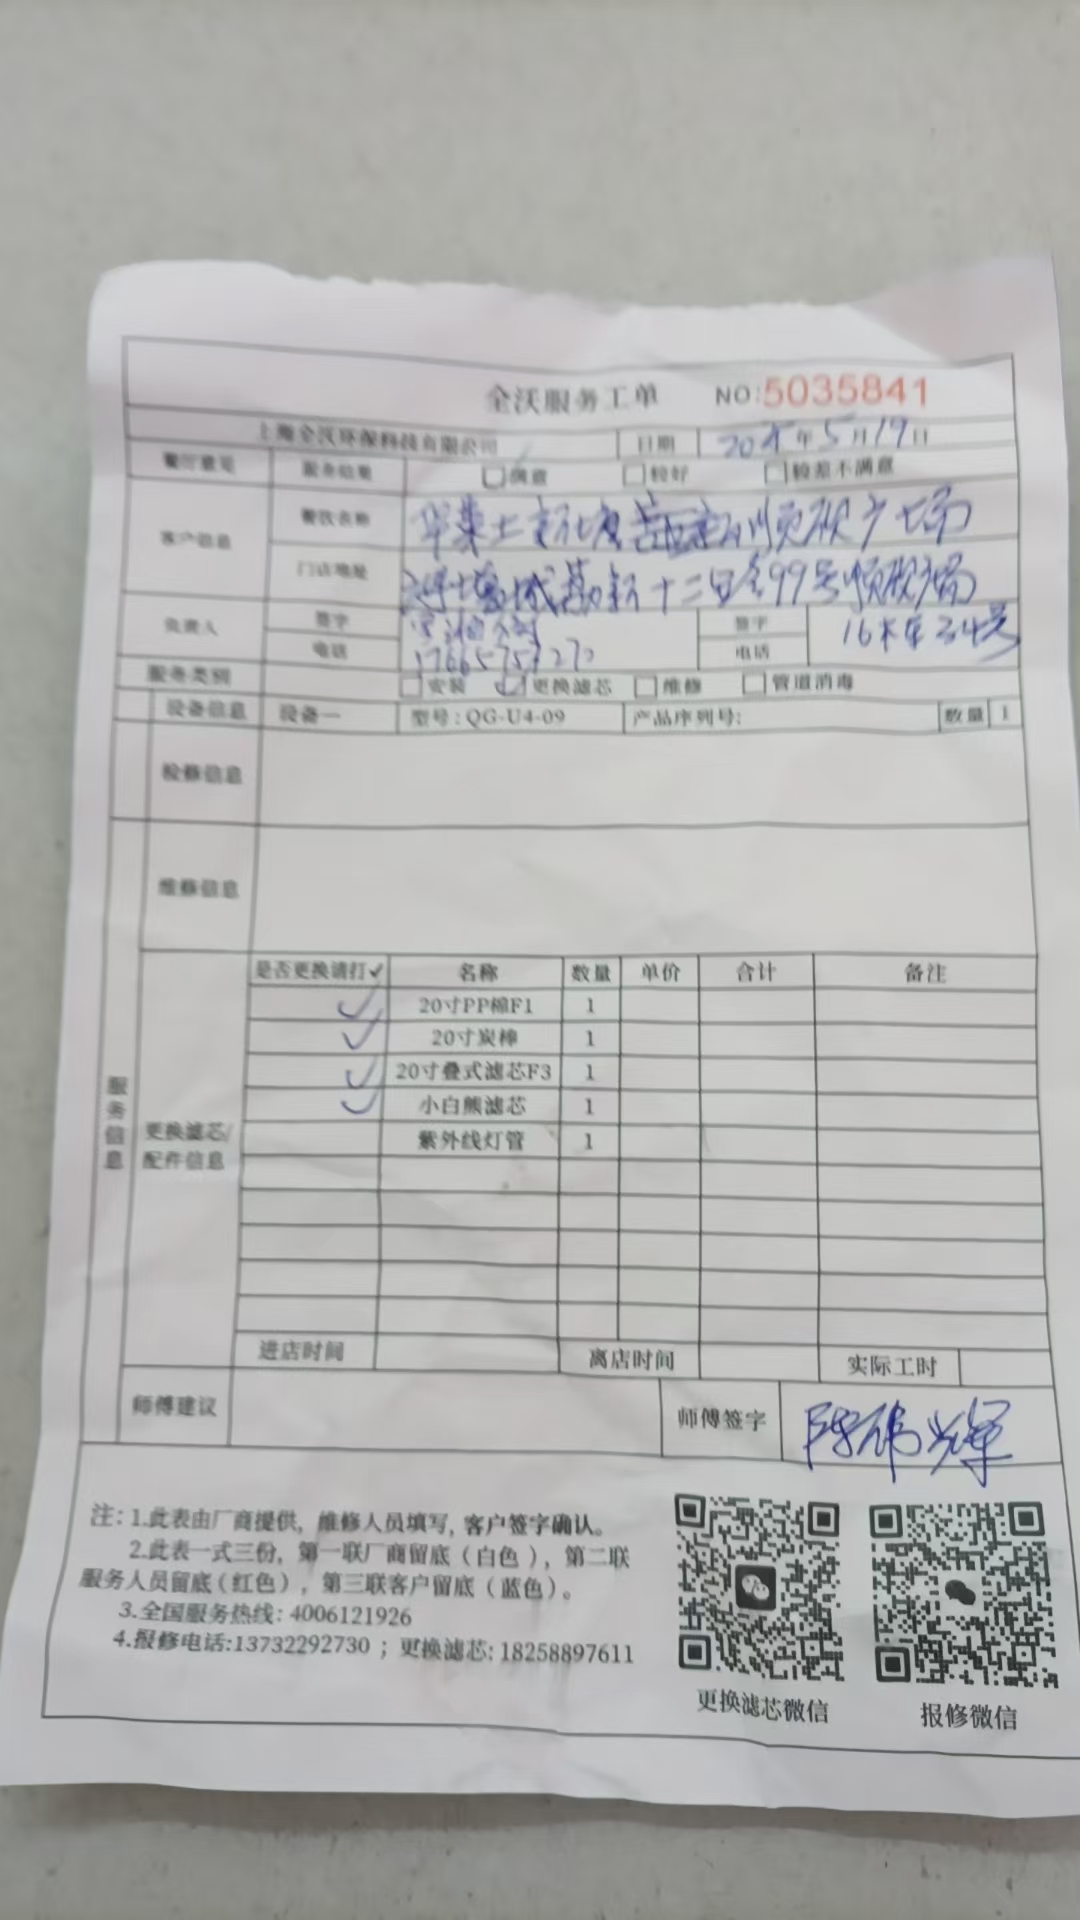 全沃服务工单 NO:5035841
上海全沃环保科技有限公司 日期 2025年5月19日
餐厅意见 服务结果 满意 较好 较差不满意
客户信息 餐饮名称 华莱士 顺欣广场
门店地址 十二 99号顺欣广场
负责人 签字 签字
电话 17665757272 电话
服务类别 安装 ✓更换滤芯 维修 管道消毒
设备信息 设备一 型号:QG-U4-09 产品序列号: 数量 1
检修信息
维修信息
服务信息
更换滤芯/配件信息
是否更换请打✓ 名称 数量 单价 合计 备注
✓ 20寸PP棉F1 1
✓ 20寸炭棒 1
✓ 20寸叠式滤芯F3 1
✓ 小白熊滤芯 1
紫外线灯管 1
进店时间 离店时间 实际工时
师傅建议 师傅签字 陈伟辉
注: 1.此表由厂商提供, 维修人员填写, 客户签字确认。
2.此表一式三份, 第一联厂商留底 ( 白色 ), 第二联
服务人员留底 ( 红色 ), 第三联客户留底 ( 蓝色 )。
3.全国服务热线: 4006121926
4.报修电话:13732292730 ; 更换滤芯: 18258897611
更换滤芯微信 报修微信